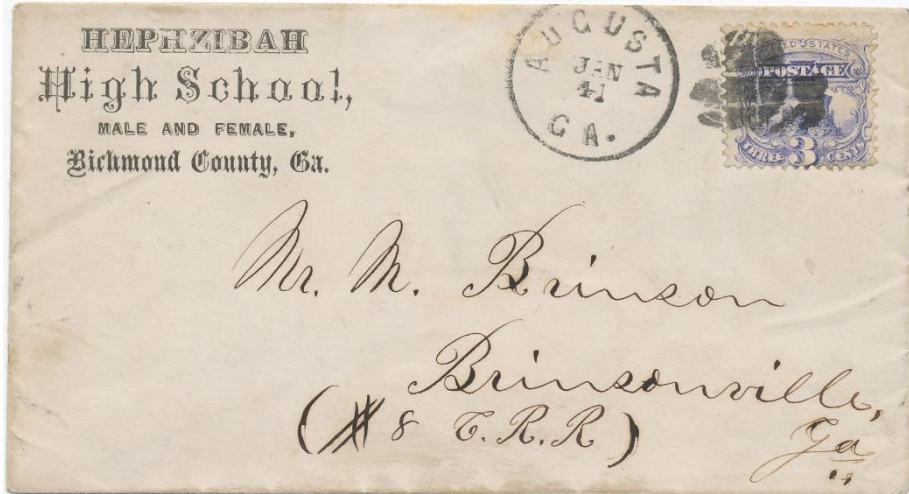 HEPHZIBAH
High School,
MALE AND FEMALE,
Richmond County, Ga.
AUGUSTA
JAN
41
GA.
UNITED STATES
POSTAGE
THREE 3 CENTS
Mr. M. Brinson
Brinsonville,
(# 8 C.R.R)
Ga